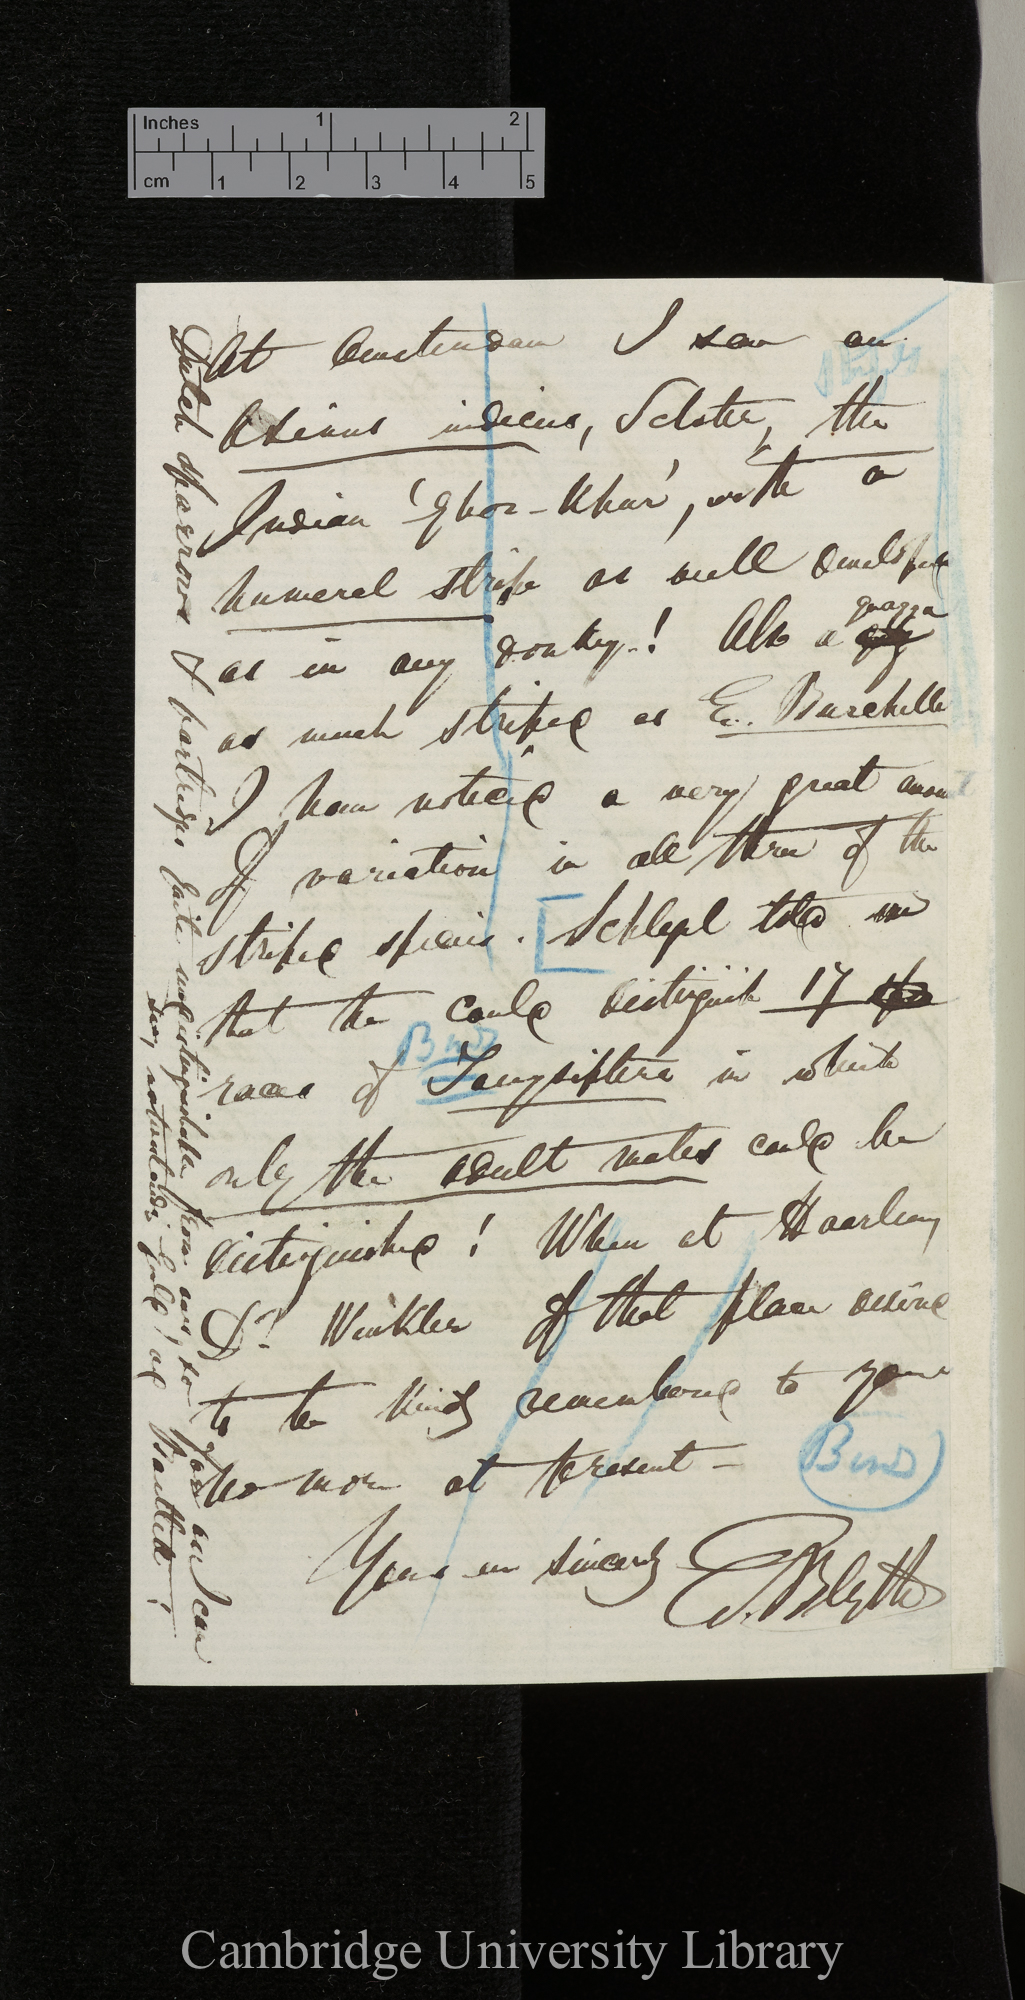 Inches 1 2
cm 1 2 3 4 5
At Amsterdam I saw an
Asinus indicus, Sclater, the
Indian 'Ghor-khur', with a
humeral stripe as well developed
as in any donkey.! Also a quagga
as much striped as E. Burchelli
I have noticed a very great amount
of variation in all three of the
striped species. Schlegel told me
that he could distinguish 17
races of Tanysiptera in which
Birds
only the adult males could be
distinguished! When at Haarlem,
Dr. Winkler of that place desired
to be kindly remembered to you
No more at present—
Birds
Yours very sincerely
E. Blyth
Dutch sparrows & partridges quite undistinguishable from ours, so far as I can
see, notwithstanding